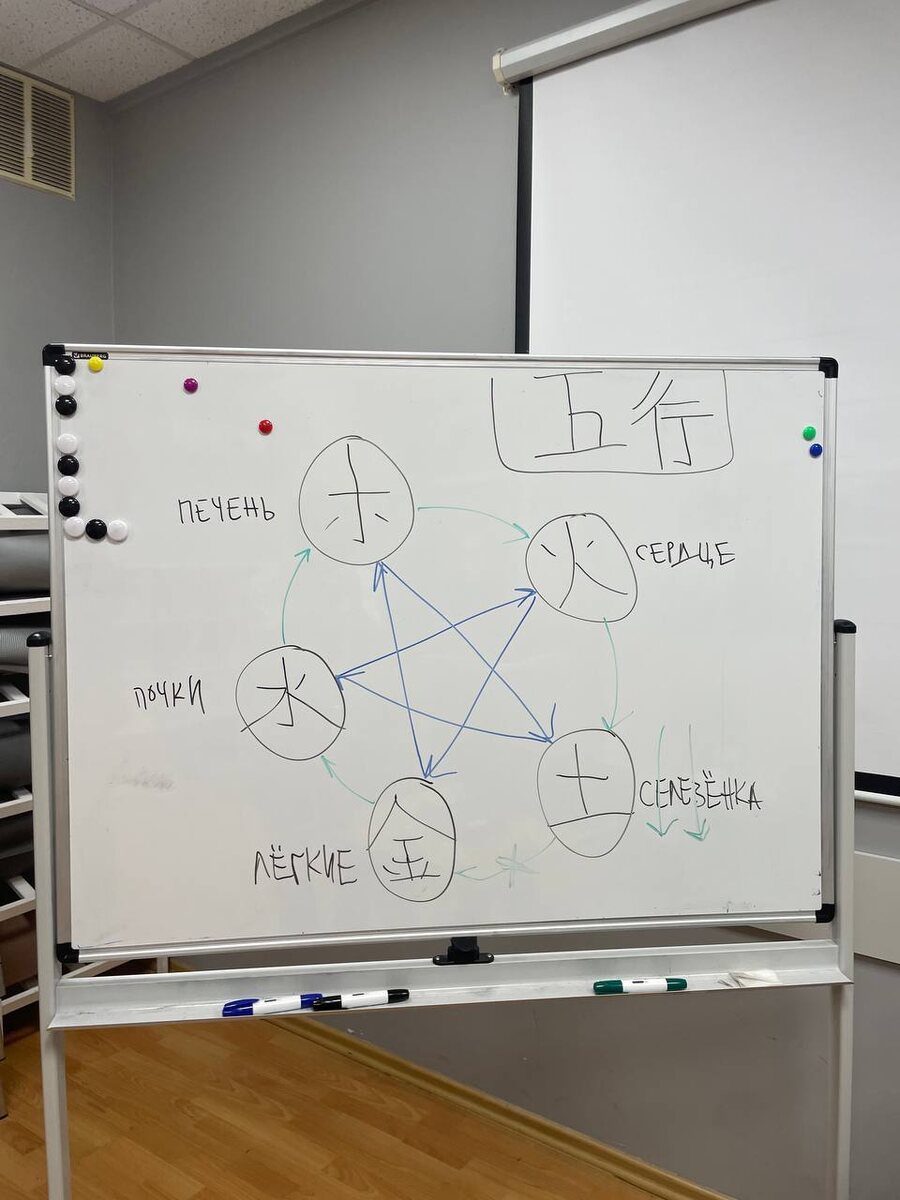 BRAUBERG
五行
木
ПЕЧЕНЬ
火
СЕРДЦЕ
水
ПОЧКИ
土
СЕЛЕЗЁНКА
金
ЛЁГКИЕ